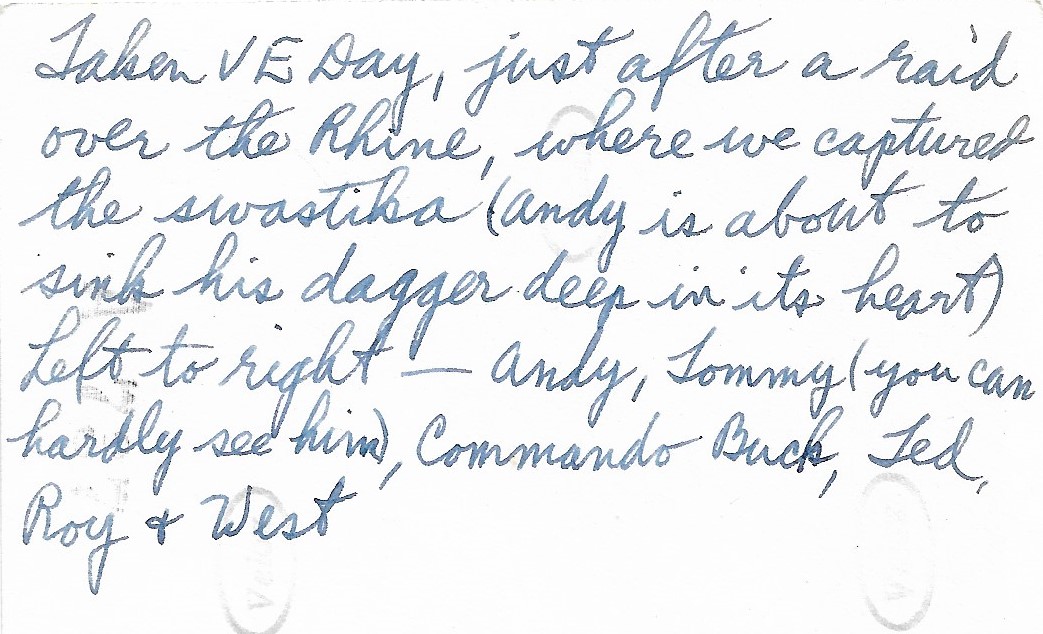 Taken VE Day, just after a raid
over the Rhine, where we captured
the swastika (Andy is about to
sink his dagger deep in its heart)
Left to right — Andy, Tommy (you can
hardly see him), Commando Buck, Ted,
Roy + West